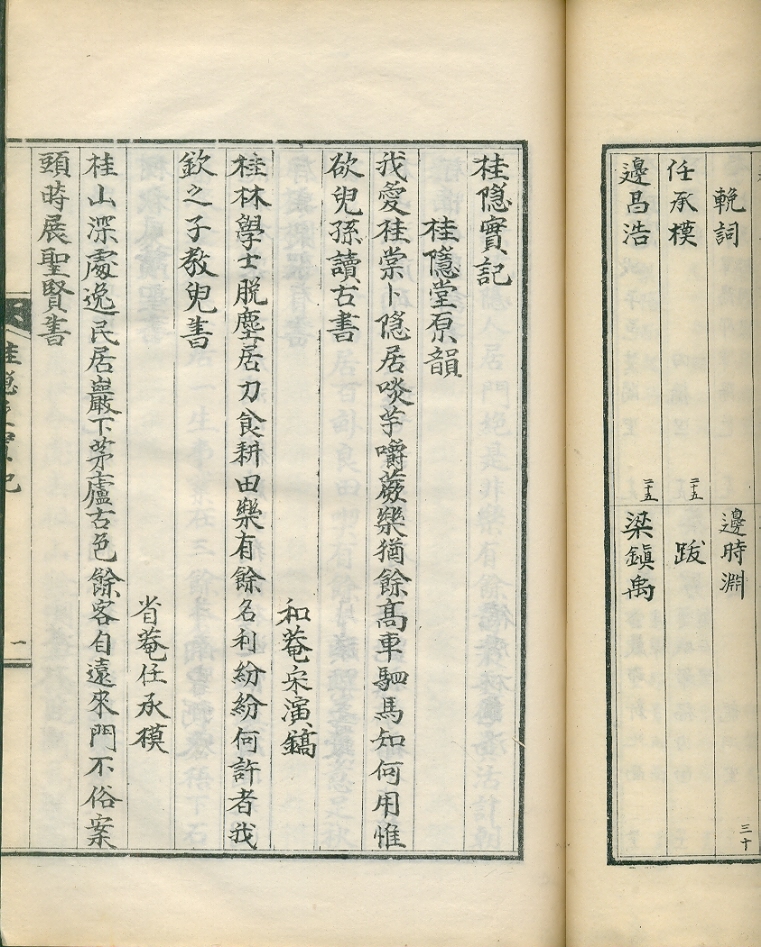 輓詞
任承模 二十五
邊昌浩 二十五
邊時淵 三十
跋
梁鎭禹
桂隱實記
桂隱堂原韻
我愛桂棠卜隱居啖芋嚼蕨樂猶餘高車駟馬知何用惟
欲兒孫讀古書
和菴宋演鎬
桂林學士脫塵居力食耕田樂有餘名利紛紛何許者我
欽之子教兒書
省菴任承模
桂山深處逸民居巖下茅廬古色餘客自遠來門不俗案
頭時展聖賢書
桂隱實記 一